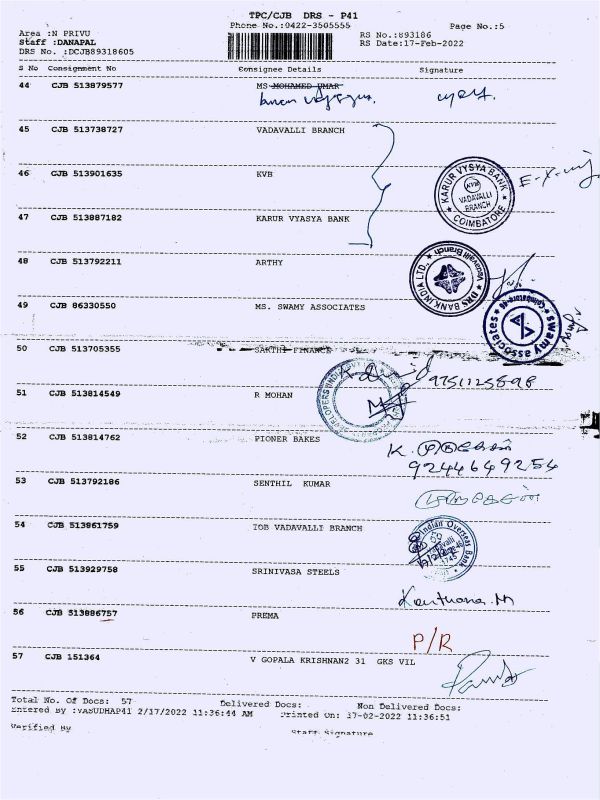 TPC/CJB DRS - P41
Phone No.:0422-3505555 Page No.:5
Area :N PRIVU RS No.:893186
Staff :DANAPAL RS Date:17-Feb-2022
DRS No. :DCJB89318605
S No Consignment No Consignee Details Signature
44 CJB 513879577 MS MOHAMED UMAR
45 CJB 513738727 VADAVALLI BRANCH
46 CJB 513901635 KVB
KARUR VYSYA BANK
KVB
VADAVALLI
BRANCH
COIMBATORE
47 CJB 513887182 KARUR VYASYA BANK
48 CJB 513792211 ARTHY
DBS BANK INDIA LTD.,
49 CJB 86330550 MS. SWAMY ASSOCIATES
swamy associates
50 CJB 513705355 SAKTHI FINANCE
9751125898
51 CJB 513814549 R MOHAN
52 CJB 513814762 PIONER BAKES
9244649254
53 CJB 513792186 SENTHIL KUMAR
54 CJB 513861759 IOB VADAVALLI BRANCH
Indian Overseas Bank
55 CJB 513929758 SRINIVASA STEELS
56 CJB 513886757 PREMA
P/R
57 CJB 151364 V GOPALA KRISHNAN2 31 GKS VIL
Total No. Of Docs: 57 Delivered Docs: Non Delivered Docs:
Entered By :VASUDHAP41 2/17/2022 11:36:44 AM Printed On: 17-02-2022 11:36:51
Verified By Staff Signature